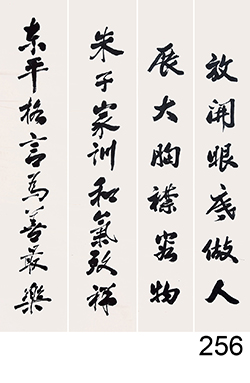 放開眼底做人
展大胸襟容物
朱子家訓和氣致祥
東平格言為善最樂
256